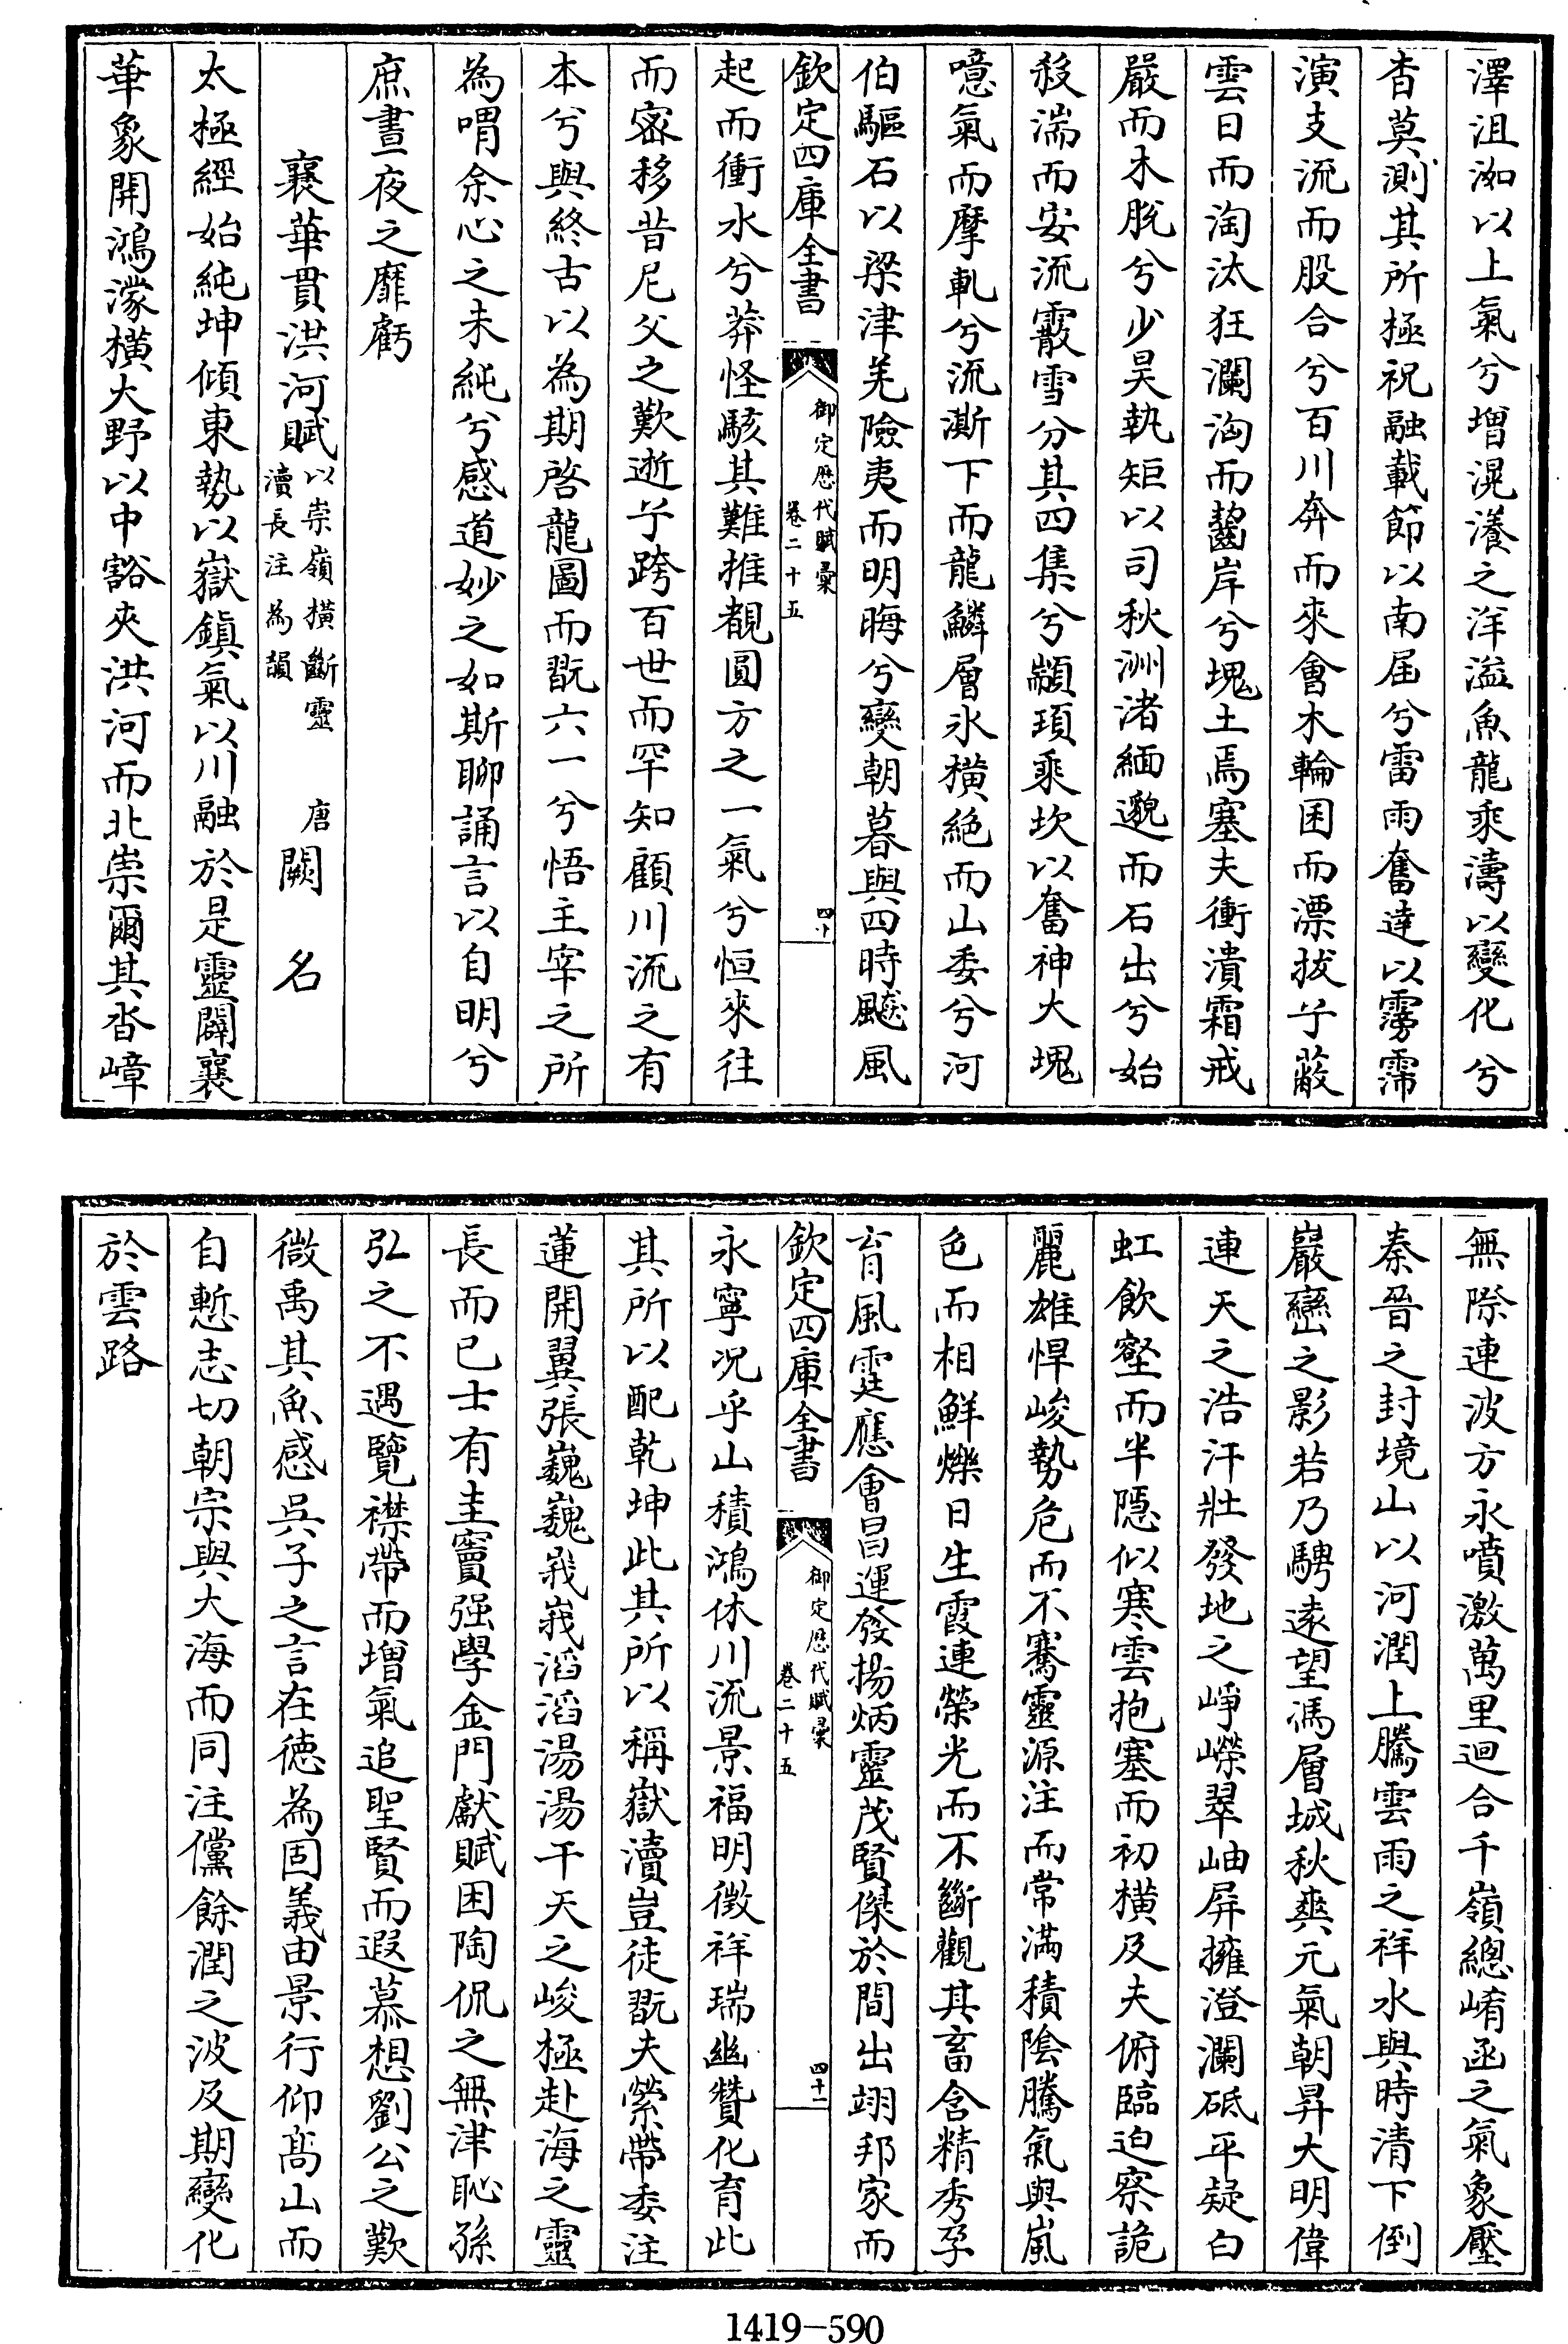 澤沮洳以上氣兮增滉瀁之洋溢魚龍乘濤以變化兮
杳莫測其所極祝融載節以南屆兮雷雨奮達以霶霈
演支流而股合兮百川奔而來會木輪囷而漂拔乎蔽
雲日而淘汰狂瀾洶而齧岸兮塊土焉塞夫衝潰霜戒
嚴而木脫兮少昊執矩以司秋洲渚緬邈而石出兮始
殺湍而安流霰雪分其四集兮顓頊乘坎以奮神大塊
噫氣而摩軋兮流澌下而龍鱗層氷橫絶而山委兮河
伯驅石以梁津羌險夷而明晦兮變朝暮與四時飈風
欽定四庫全書
御定歴代賦彙
卷二十五
四十
起而衝水兮莽怪駭其難推覩圓方之一氣兮恒來往
而密移昔尼父之歎逝乎跨百世而罕知顧川流之有
本兮與終古以為期啓龍圖而翫六一兮悟主宰之所
為喟余心之未純兮感道妙之如斯聊誦言以自明兮
庶晝夜之靡虧
襄華貫洪河賦以崇嶺橫斷靈
瀆長注為韻
唐闕名
太極經始純坤傾東勢以嶽鎮氣以川融於是靈闢襄
華象開鴻濛橫大野以中豁夾洪河而北崇爾其沓嶂
無際連波方永噴激萬里迴合千嶺總崤函之氣象壓
秦晉之封境山以河潤上騰雲雨之祥水與時清下倒
巖巒之影若乃騁遠望馮層城秋爽元氣朝昇大明偉
連天之浩汗壯發地之崢嶸翠岫屏擁澄瀾砥平疑白
虹飲壑而半隱似寒雲抱塞而初橫及夫俯臨迫察詭
麗雄悍峻勢危而不騫靈源注而常滿積陰騰氣與嵐
色而相鮮爍日生霞連榮光而不斷觀其畜含精秀孕
育風霆應會昌運發揚炳靈茂賢傑於間出翊邦家而
欽定四庫全書
御定歴代賦彙
卷二十五
四十一
永寧况乎山積鴻休川流景福明徵祥瑞幽贊化育此
其所以配乾坤此其所以稱嶽瀆豈徒翫夫縈帶委注
蓮開翼張巍巍峩峩滔滔湯湯干天之峻極赴海之靈
長而已士有圭竇强學金門獻賦困陶侃之無津恥孫
弘之不遇覽襟帶而增氣追聖賢而遐慕想劉公之歎
微禹其魚感吳子之言在徳為固義由景行仰髙山而
自慙志切朝宗與大海而同注儻餘潤之波及期變化
於雲路
1419-590